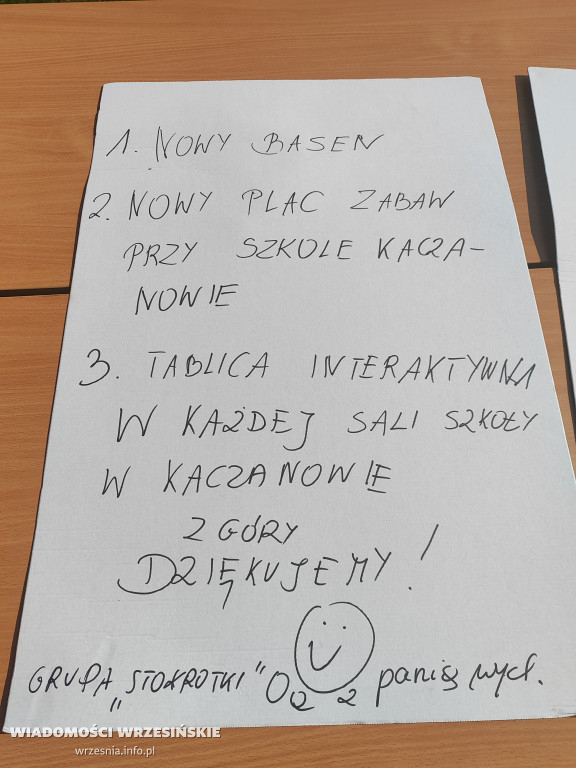 1. NOWY BASEN
2. NOWY PLAC ZABAW
PRZY SZKOLE KACZA-
NOWIE
3. TABLICA INTERAKTYWNA
W KAŻDEJ SALI SZKOŁY
W KACZANOWIE
Z GÓRY
DZIĘKUJEMY!
GRUPA „STOKROTKI" z panią wych.
WIADOMOŚCI WRZESIŃSKIE
wrzesnia.info.pl